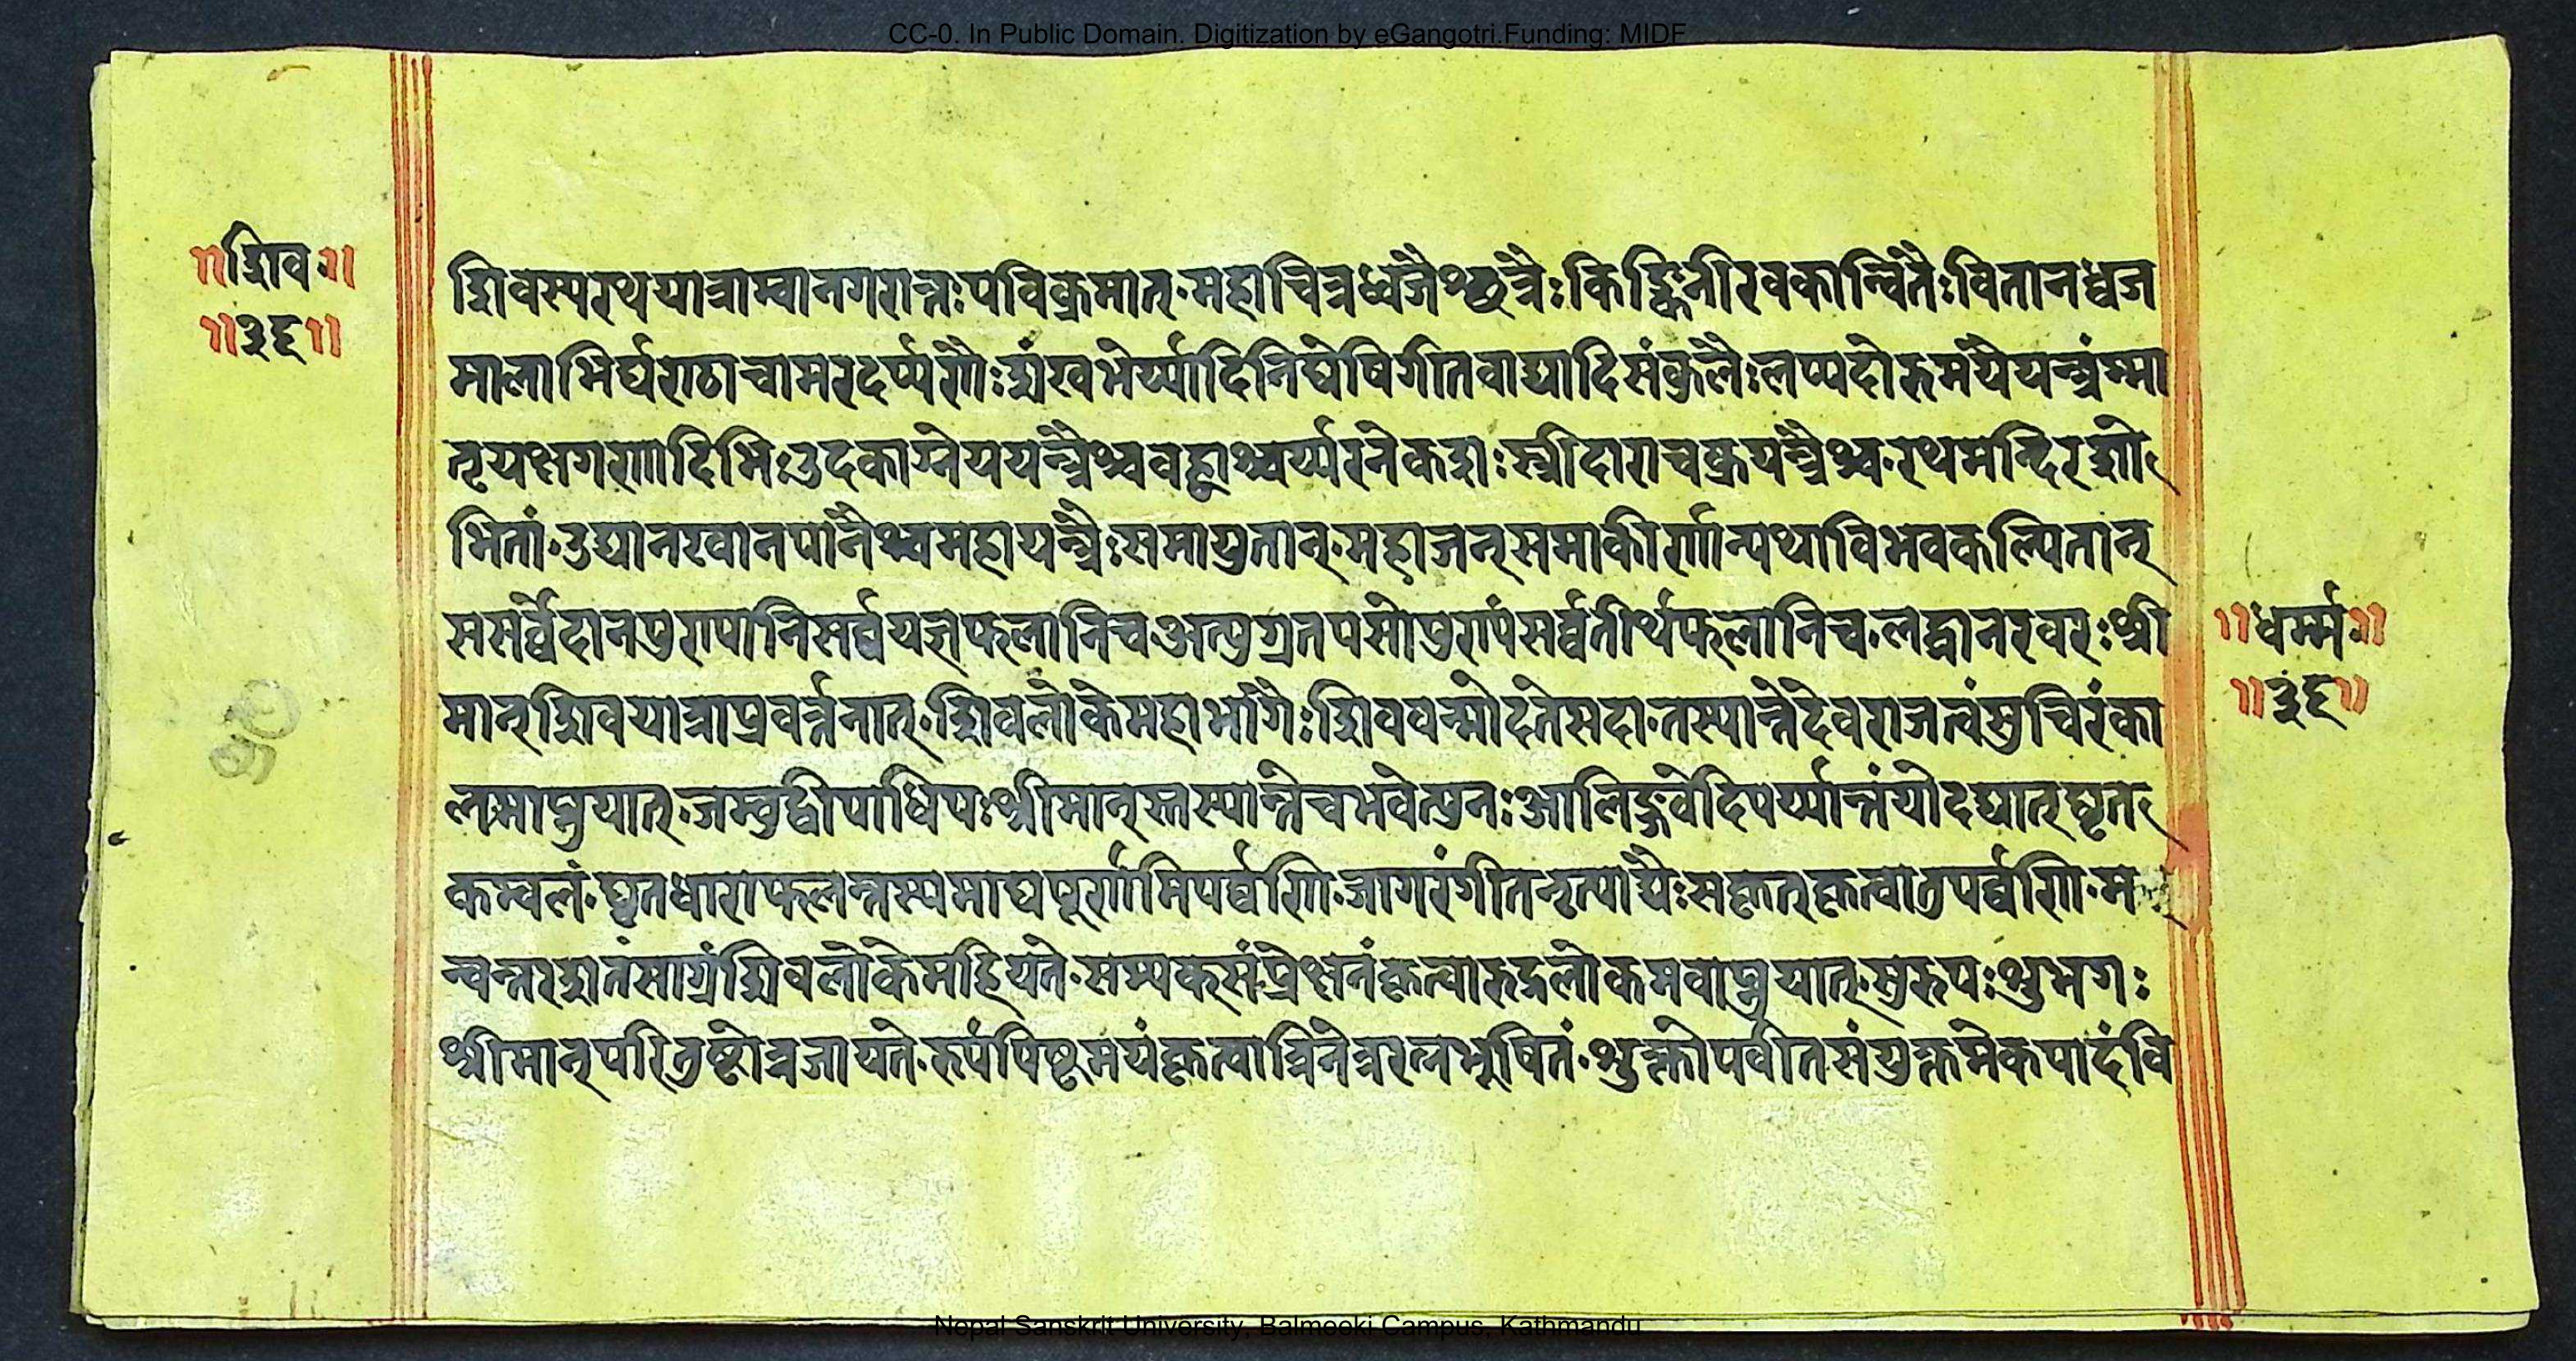 CC-0. In Public Domain. Digitization by eGangotri.Funding: MIDF
॥शिव॥
॥३६॥
शिवस्यरथयात्राम्वानगरान्तःपविक्रमात्·महाचित्रध्वजैश्छत्रैःकिङ्किनीरवकान्वितैःवितानध्वज
मालाभिर्घराठाचामरदर्प्परौःशंखभेर्य्यादिनिघेषिगीतवाद्यादिसंकुलैःलप्यदोरुमयैयन्त्रंम्मा
तृयक्षगरणादिभिःउदकाग्नेययन्त्रैश्चवह्वाश्चर्य्यरनेकशःस्त्रीदाराचक्रयन्त्रैश्च·रथमन्दिरशो
भितां·उद्यानखानपानैश्चमहायन्त्रैःसमायुतान्·महाजन्समाकीर्णान्यथाविभवकल्पितान्
ससर्व्वेदानपुरापानिसर्व्वयज्ञफलानिचअत्युग्रतपसोपुरापंसर्व्वतीर्थफलानिच·लद्वानरवरःश्री
मान्शिवयात्राप्रवर्त्तनात्·शिवलोकेमहाभोगैःशिववन्मोदतेसदा·तस्यान्तेदेवराजत्वंसुचिरंका
लमाप्नुयात्·जम्वुद्वीपाधिपःश्रीमान्स्तस्यान्तेचभवेत्पुनःआलिङ्गवेदिपर्य्यान्तंयोदद्यात्घृत
कम्वलं·घृतधाराफलन्तस्यमाघपूर्णामिपर्व्वणि·जागरंगीतनृत्याद्यैःसकृतकृत्वातुपर्व्वणि·म
न्वन्तरशतंसाग्रंशिवलोकेमहियते·सम्यक्संप्रेक्षनंकृत्वारुद्रलोकमवाप्नुयात्·सुरुपःशुभगः
श्रीमान्परितुष्टोत्रजायते·रुपंपिष्टमयंकृत्वात्रिनेत्ररत्नभुषितं·शुक्लोपवीतसंयुक्तमेकपादंवि
॥धर्म्म॥
॥३६॥
Nopal Sanskrit University, Balmeeki Campus, Kathmandu